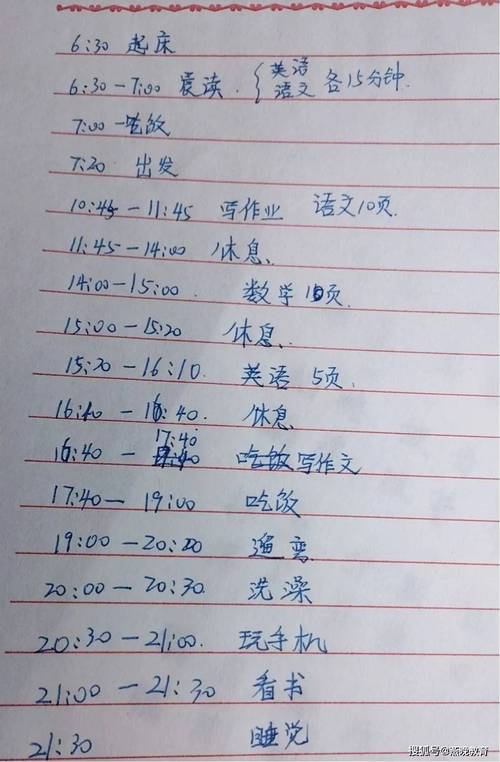 6:30 起床
6:30-7:00 晨读. { 英语 语文 各15分钟.
7:00 吃饭
7:20 出发
10:45-11:45 写作业 语文10页.
11:45-14:00 休息.
14:00-15:00. 数学10页.
15:00-15:20 休息.
15:20-16:10. 英语 5页.
16:10-16:40. 休息
17:40
16:40- 吃饭写作文
17:40-19:00 吃饭
19:00-20:20 遛弯
20:00-20:30 洗澡
20:30-21:00. 玩手机
21:00-21:30 看书
21:30 睡觉
搜狐号@燕晚教育